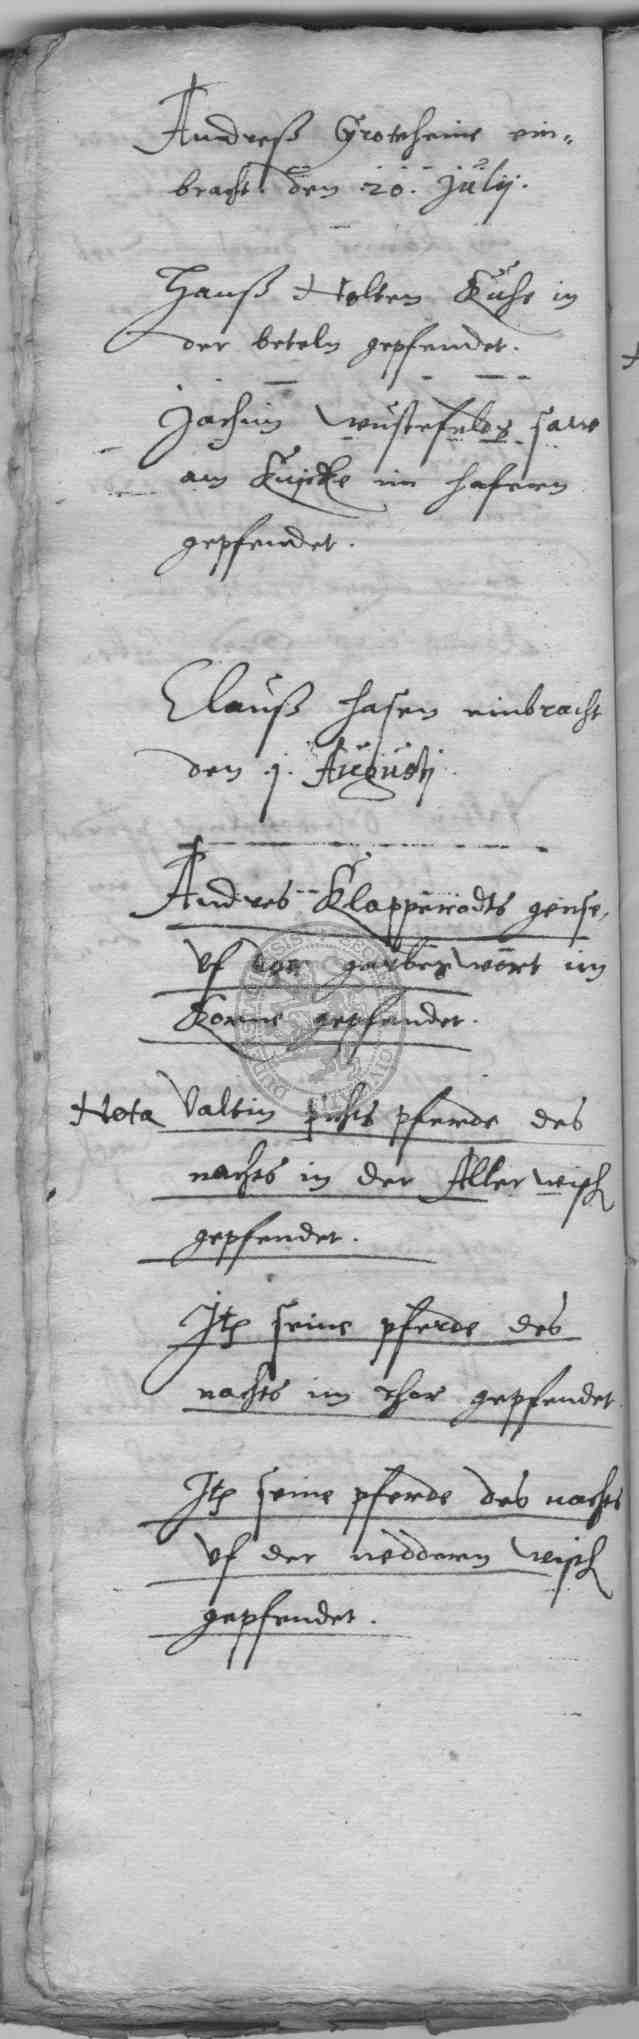 Andreß Groteheine ein-
bracht. den .20. Julij.
Hanß Nolten Kuhe in
der beteln gepfendet.
Jochim wustefeldes sawe
am Knicke im hafern
gepfendet.
Clauß hasen einbracht
den .j. Augustj
Andres Klapperodts gense,
vf der garbes wort im
Korne gepfendet.
Nota Valtin pferde des
nachts in der Allerwisch
gepfendet.
Jtem seine pferde des
nachts im rhor gepfendet
Jtem seine pferde des nachts
vf der nedderen wisch
gepfendet.